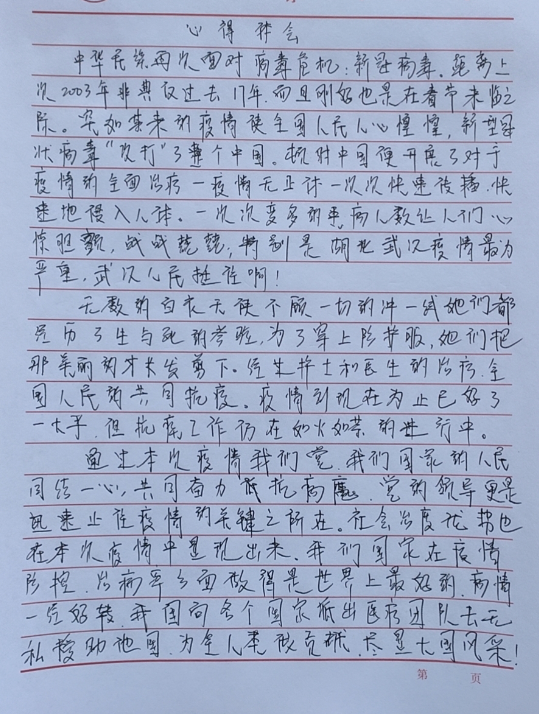 心得体会
中华民族再次面对病毒危机:新冠病毒。距离上
次2003年非典仅过去17年.而且刚好也是在春节来临之
际。突如其来的疫情使全国人民人心惶惶,新型冠
状病毒“攻打”了整个中国。顿时中国便开展了对于
疫情的全面治疗一疫情无止休一次次快速传播.快
速地侵入人体。一次次变多的病人数让人们心
惊胆颤,战战兢兢,特别是湖北武汉疫情最为
严重,武汉人民挺住啊!
无数的白衣天使不顾一切的冲一线她们都
经历了生与死的考验,为了穿上防护服,她们把
那美丽的才长发剪下。经过护士和医生的治疗.全
国人民的共同抗疫。疫情到现在为止已好了
一大半.但抗疫工作仍在如火如荼的进行中。
通过本次疫情我们党.我们国家的人民
团结一心,共同奋力抵抗病魔.党的领导更是
迅速止住疫情的关键之所在。社会制度优势也
在本次疫情中显现出来.我们国家在疫情
防控.治病等方面做得是世界上最好的.病情
一经好转.我国向各个国家派出医疗团队去无
私援助他国.为全人类做贡献.尽显大国风采!
第 页